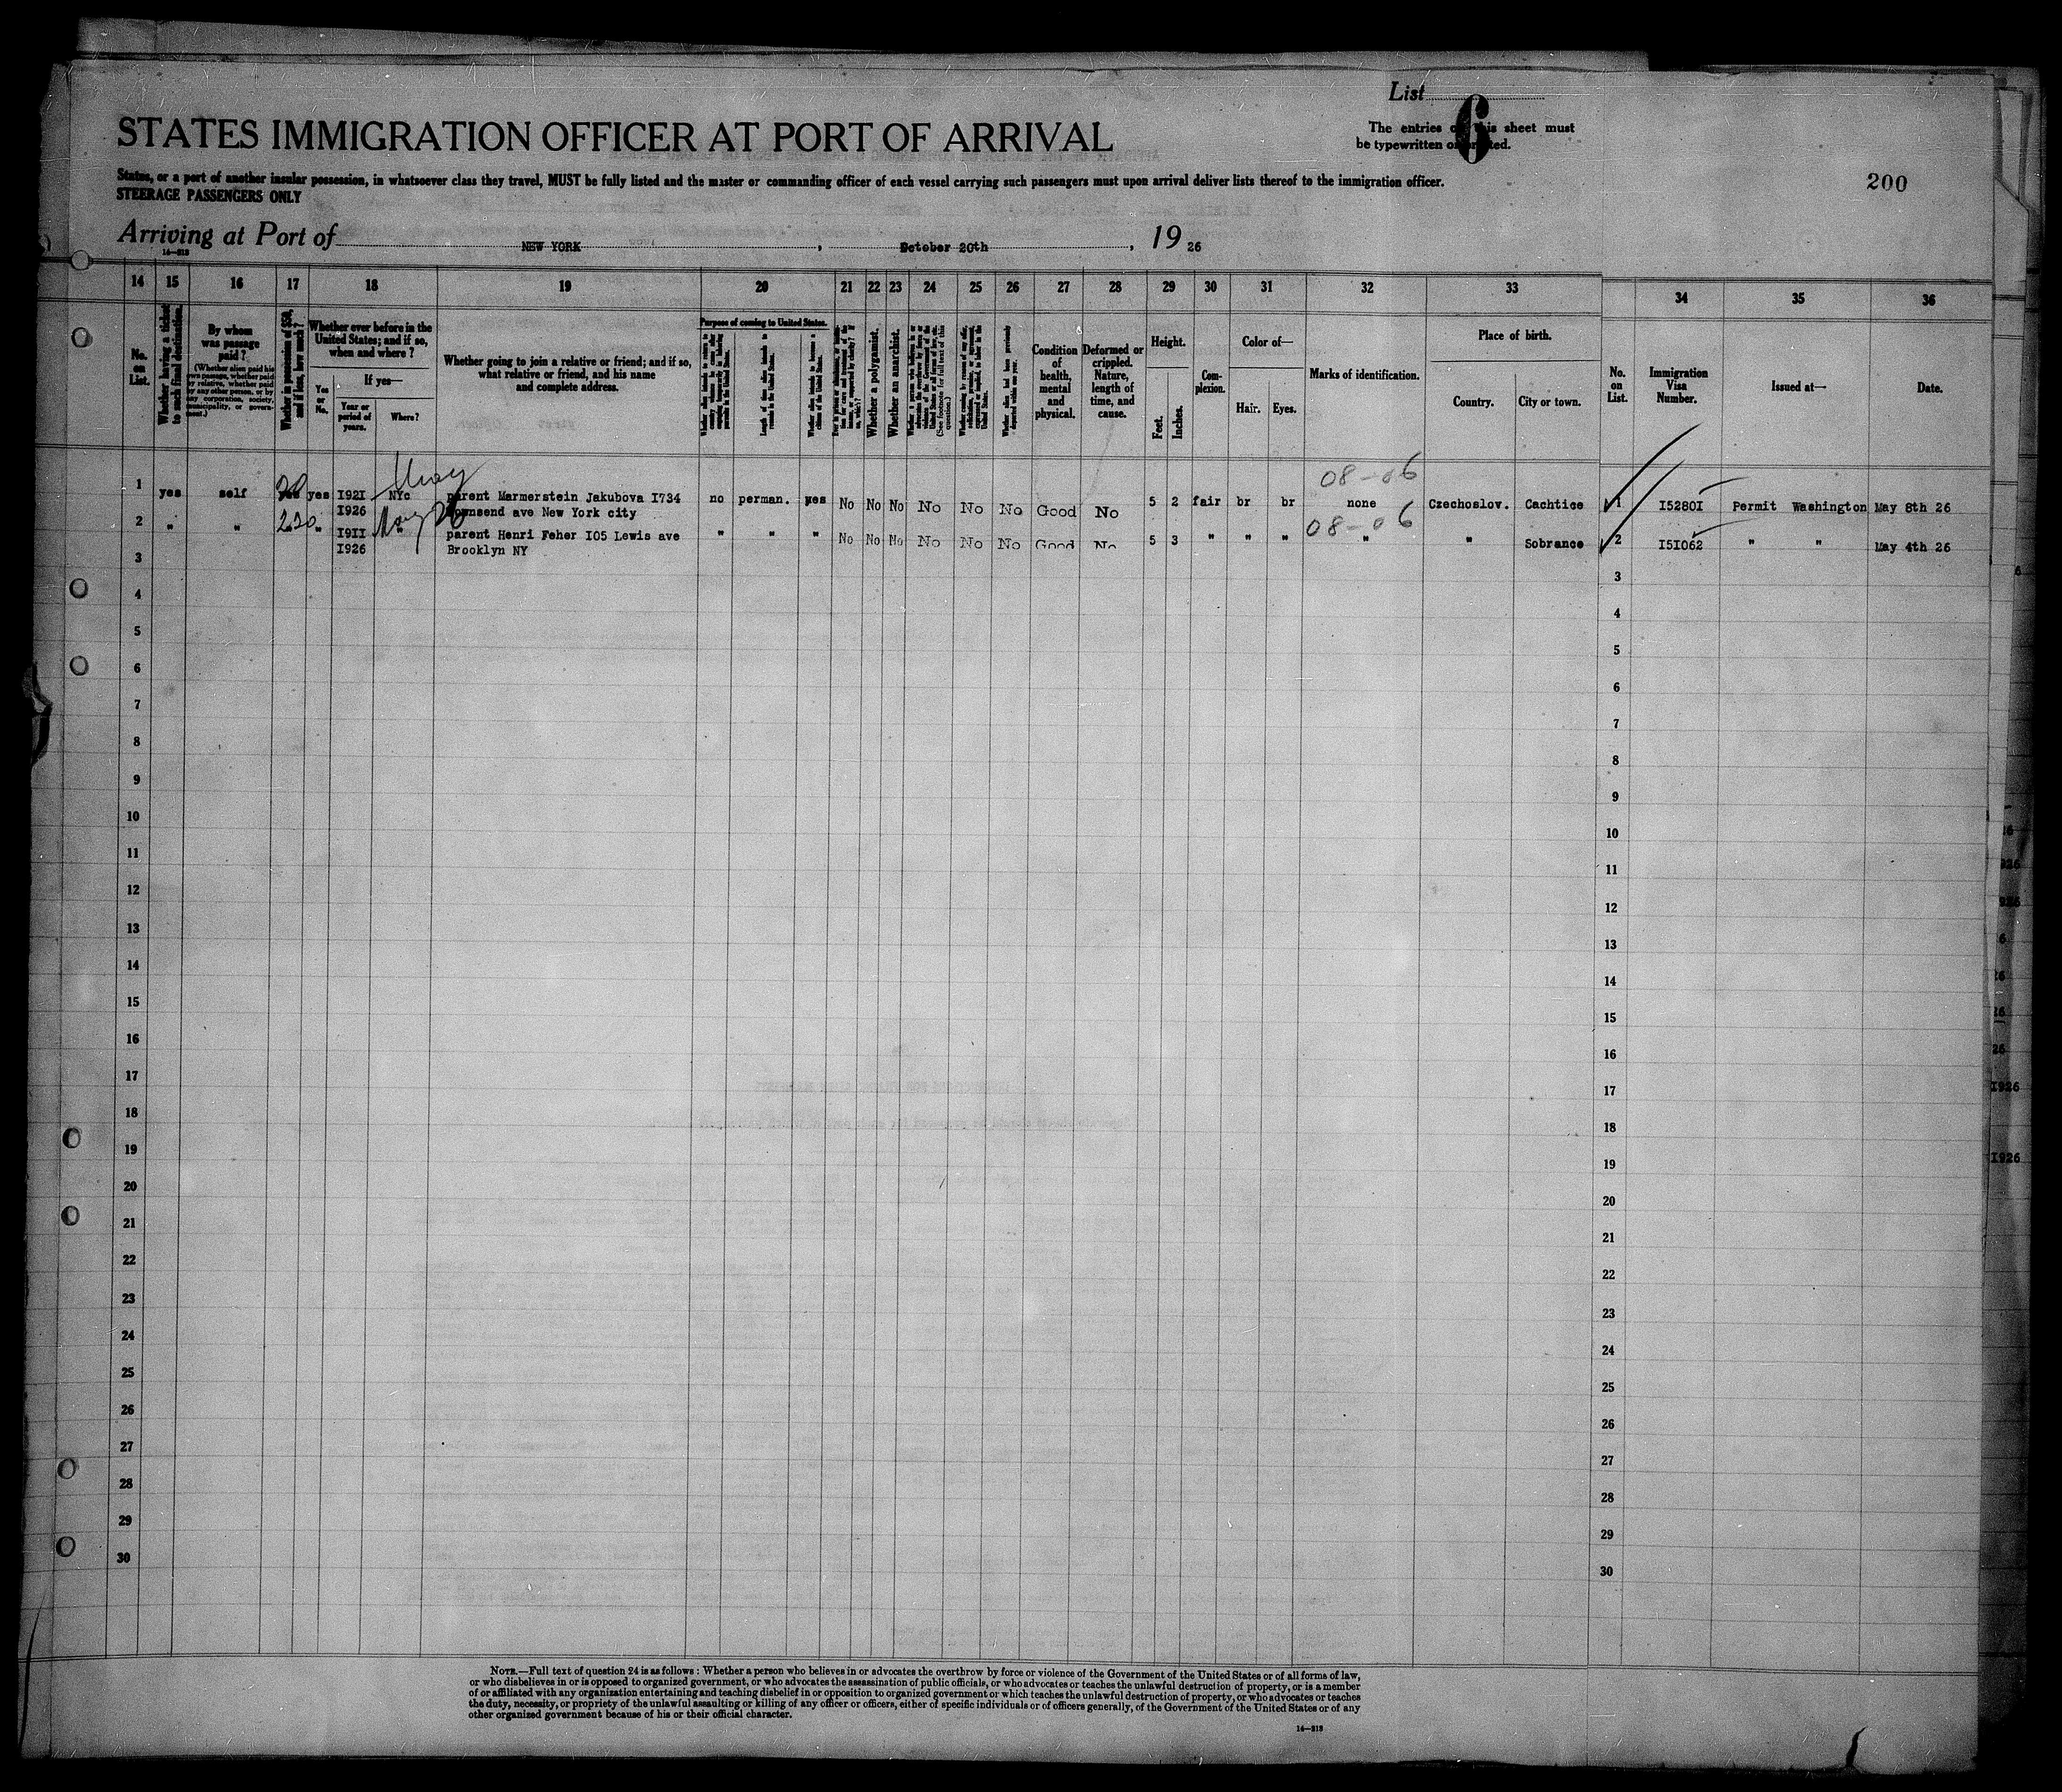 List
6
STATES IMMIGRATION OFFICER AT PORT OF ARRIVAL
The entries of this sheet must
be typewritten or printed.
States, or a port of another insular possession, in whatsoever class they travel, MUST be fully listed and the master or commanding officer of each vessel carrying such passengers must upon arrival deliver lists thereof to the immigration officer.
STEERAGE PASSENGERS ONLY
200
Arriving at Port of NEW YORK , October 20th , 19 26
14—213
14 15 16 17 18 19 20 21 22 23 24 25 26 27 28 29 30 31 32 33 34 35 36
No. on List.
Whether having a ticket to such final destination.
By whom was passage paid?
(Whether alien paid his own passage, whether paid by relative, whether paid by any other person, or by any corporation, society, municipality, or government.)
Whether in possession of $50, and if less, how much?
Whether ever before in the United States; and if so, when and where?
Yes or No.
If yes—
Year or period of years.
Where?
Whether going to join a relative or friend; and if so, what relative or friend, and his name and complete address.
Purpose of coming to United States.
Length of time alien intends to remain in the United States.
Whether alien intends to become a citizen of the United States.
Whether a polygamist.
Whether an anarchist.
(See footnote for full text of this question.)
Whether alien had been previously deported within one year.
Condition of health, mental and physical.
Deformed or crippled. Nature, length of time, and cause.
Height.
Feet.
Inches.
Complexion.
Color of—
Hair.
Eyes.
Marks of identification.
Place of birth.
Country.
City or town.
No. on List.
Immigration Visa Number.
Issued at—
Date.
May
08-06
1 yes self 20 yes I92I NYc parent Marmerstein Jakubova I734 no perman. yes No No No No No No Good No 5 2 fair br br none Czechoslov. Cachtice 1 I5280I Permit Washington May 8th 26
I926 Townsend ave New York city
May 26
08-06
2 " " 230 " I9II " parent Henri Feher I05 Lewis ave " " " No No No No No No Good No 5 3 " " " " " Sobrance 2 I5I062 " " May 4th 26
I926 Brooklyn NY
3 3
4 4
5 5
6 6
7 7
8 8
9 9
10 10
11 11
12 12
13 13
14 14
15 15
16 16
17 17
18 18
19 19
20 20
21 21
22 22
23 23
24 24
25 25
26 26
27 27
28 28
29 29
30 30
NOTE.—Full text of question 24 is as follows: Whether a person who believes in or advocates the overthrow by force or violence of the Government of the United States or of all forms of law,
or who disbelieves in or is opposed to organized government, or who advocates the assassination of public officials, or who advocates or teaches the unlawful destruction of property, or is a member
of or affiliated with any organization entertaining and teaching disbelief in or opposition to organized government or which teaches the unlawful destruction of property, or who advocates or teaches
the duty, necessity, or propriety of the unlawful assaulting or killing of any officer or officers, either of specific individuals or of officers generally, of the Government of the United States or of any
other organized government because of his or their official character.
14—213